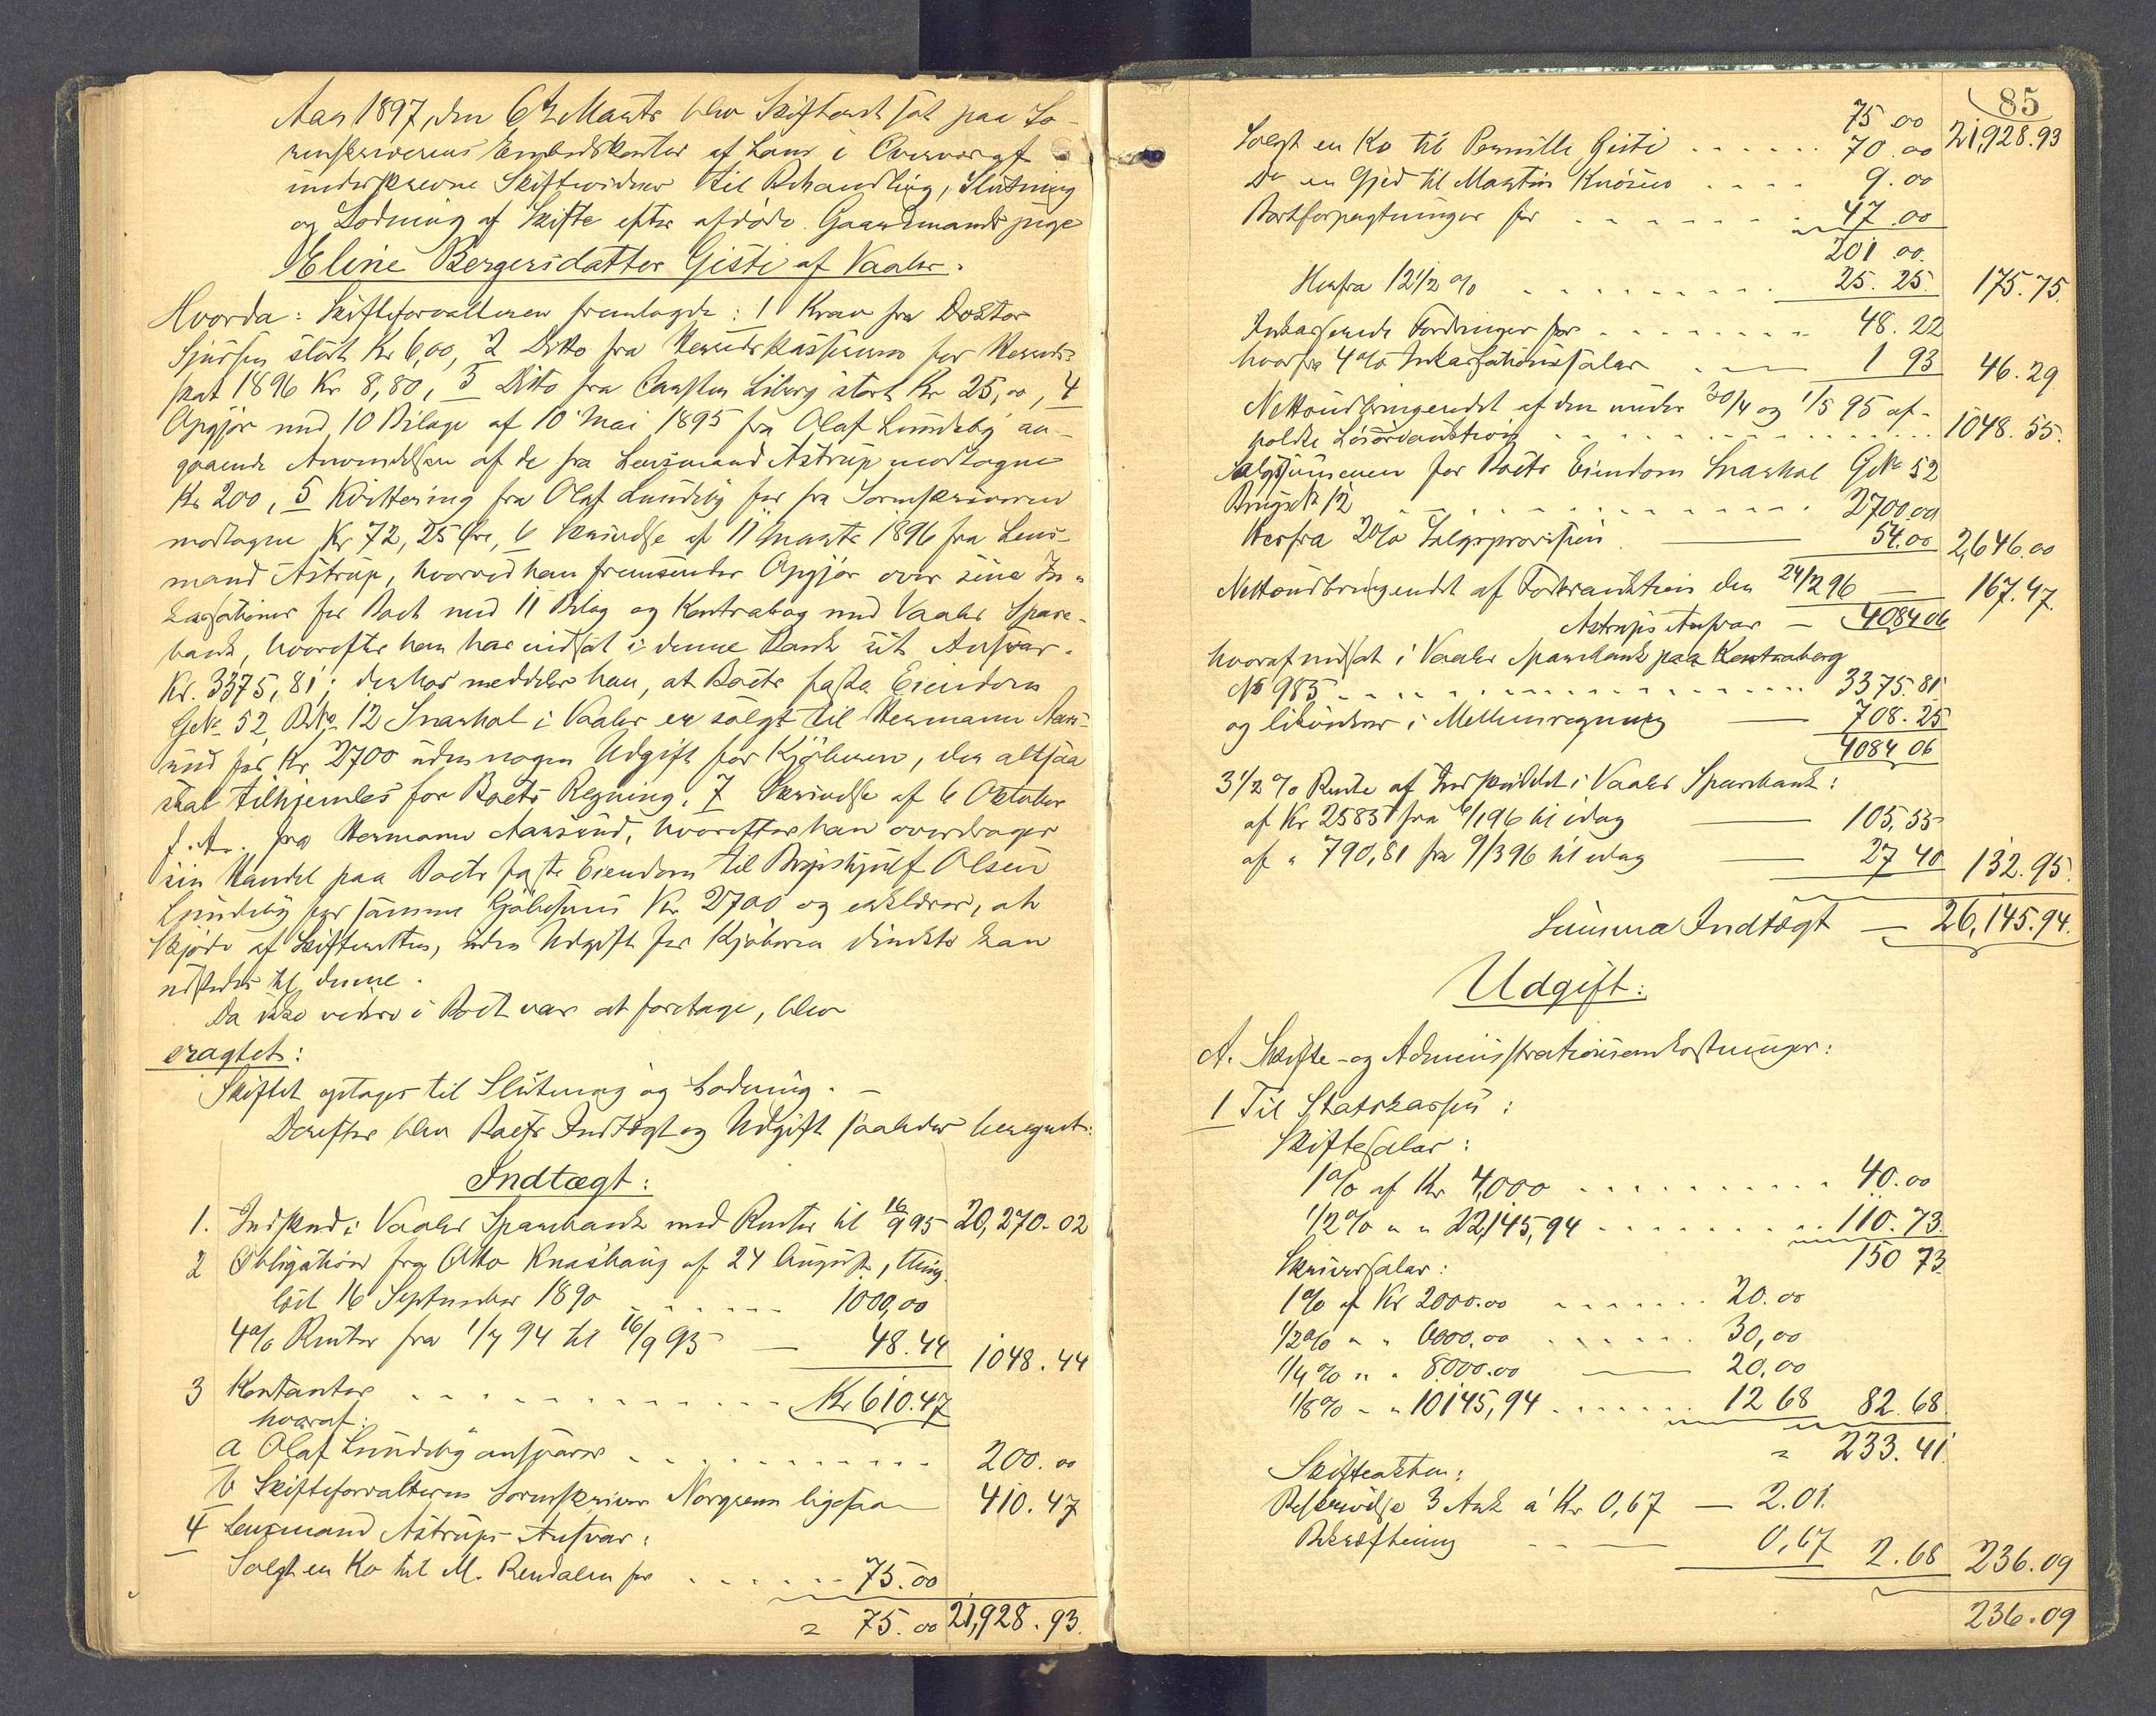 Aar 1897, den 6te Marts blev Skifteret sat paa So-
renskriverens Embedskontor af ham i Overvær af
underskrevne Skiftevidner til Behandling, Slutning
og Lodning af Skifte efter afdøde Gaardmandspige
Eline Bergersdatter Gisti af Vaaler.
Hvorda: Skifteforvalteren fremlagde: 1 Krav fra Doktor
Sjursen stort Kr 6,00, 2 Ditto fra Herredskassereren for Herreds-
skat 1896 Kr 8,80, 3 Ditto fra Carsten Liberg stort Kr 25,00, 4
Opgjør med 10 Bilage af 10 Mai 1895 fra Olaf Lundeby an-
gaaende Anvendelsen af de fra Lensmand Astrup modtagne
Kr 200, 5 Kvittering fra Olaf Lundeby for fra Sorenskriveren
modtagne Kr 72, 25 Øre, 6 Skrivelse af 11 Marts 1896 fra Lens-
mand Astrup, hvorved han fremsender Opgjør over sine In-
kassationer for Boet med 11 Bilag og Kontrabog med Vaaler Spare-
bank, hvorefter han har indsat i denne Bank sit Ansvar
Kr. 3375,81; derhos meddeler han, at Boets faste Eiendom
GNo 52, BNo 12 Snarhol i Vaaler er solgt til Hermann Aar-
sund for Kr 2700 uden nogen Udgift for Kjøberen, der altsaa
skal tilhjemles for Boets Regning. 7 Skrivelse af 6 Oktober
f. A. fra Hermann Aarsund, hvorefter han overdrager
sin Handel paa Boets faste Eiendom til Olsen
Lundeby for samme Kjøbesum Kr 2700 og erklærer, at
Skjøde af Skifteretten, uden Udgift for Kjøberen direkte kan
udstedes til denne.
Da ikke videre i Boet var at foretage, blev
eragtet:
Skiftet optages til Slutning og Lodning. –
Derefter blev Boets Indtægt og Udgift saaledes beregnet:
Indtægt:
1. Indskud i Vaaler Sparebank med Renter til 16/9 95 20,270.02
2 Obligation fra Otto Knashaug af 24 August, thing-
læst 16 September 1890 1000,00
4% Renter fra 1/7 94 til 16/9 95 — 48.44 1048.44
3 Kontanter Kr 610.47
hvoraf:
a Olaf Lundeby ansvarer 200.00
b Skifteforvalteren Sorenskriver Norgrenn ligesaa 410.47
4 Lensmand Astrups Ansvar:
Solgt en Ko til M. Rendalen for 75.00
= 75.00 21,928.93.
85
75 00 21,928.93
Solgt en Ko til Pernille Gisti 70.00
Do en Gjed til Martin Knøsen 9.00
Bortforpagtninger for 47 00
201 00.
Herfra 12 1/2 % 25.25 175.75.
Inkasserede Fordringer for 48.22
hvorfra 4% Inkassationssalær 1 93 46.29
Nettoudbringendet af den under 30/4 og 1/5 95 af-
holdte Løsøreauktion 1048.55.
Salgssummen for Boets Eiendom Snarhol GNo 52
BrugsNo 12 2700,00
Herfra 2% Salgsprovision 54.00 2,646.00
Nettoudbringendet af Fordrauktion den 24/2 96 — 167.47.
Astrups Ansvar — 4084 06
hvoraf indsat i Vaaler Sparebank paa Kontrabog
No 985 3375.81
og likvideres i Mellemregning 708.25
4084 06
3 1/2 % Rente af Indskuddet i Vaaler Sparebank:
af Kr 2585 fra 6/1 96 til idag 105,55
af " 790,81 fra 9/3 96 til idag 27 40 132.95.
Summa Indtægt — 26,145.94.
Udgift:
A. Skifte- og Administrationsomkostninger:
1 Til Statskassen:
Skiftesalær:
1% af Kr 4,000 40.00
1/2% " " 22,145,94 110.73.
150 73
Skriversalær:
1% af Kr 2000.00 20.00
1/2% " " 6000.00 30,00
1/4% " " 8000.00 20,00
1/8% " " 10145,94 12 68 82.68.
= 233.41.
Skifteakten:
Beskrivelse 3 Ark á Kr 0,67 — 2.01.
Bekræftning 0,67 2.68 236.09
236.09